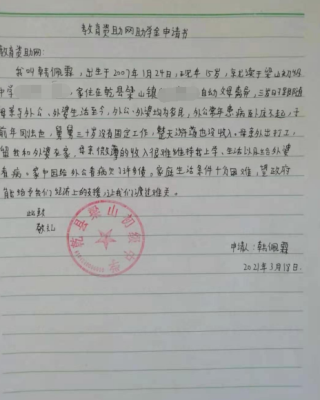 教育资助网助学金申请书
教育资助网:
我叫韩佩霖,出生于2007年1月24日,现年15岁,就读于梁山初级
中学 家住在乾县梁山镇 自幼父母离异,三岁
母亲与外公、外婆生活至今,外公、外婆均为农民,外公
前年刚去世,舅舅三十岁没有固定工作,整天 没收入。母亲外出打工,
留我和外婆在家,母亲微薄的收入很难维持我上学、生活以及
看病。家中因给外公看病欠了许多债,家庭生活条件十分困难,望政府
能给予我们经济上的支援,让我们渡过难关。
此致
敬礼
乾县梁山初级中学
申请人:韩佩霖
2021年3月18日